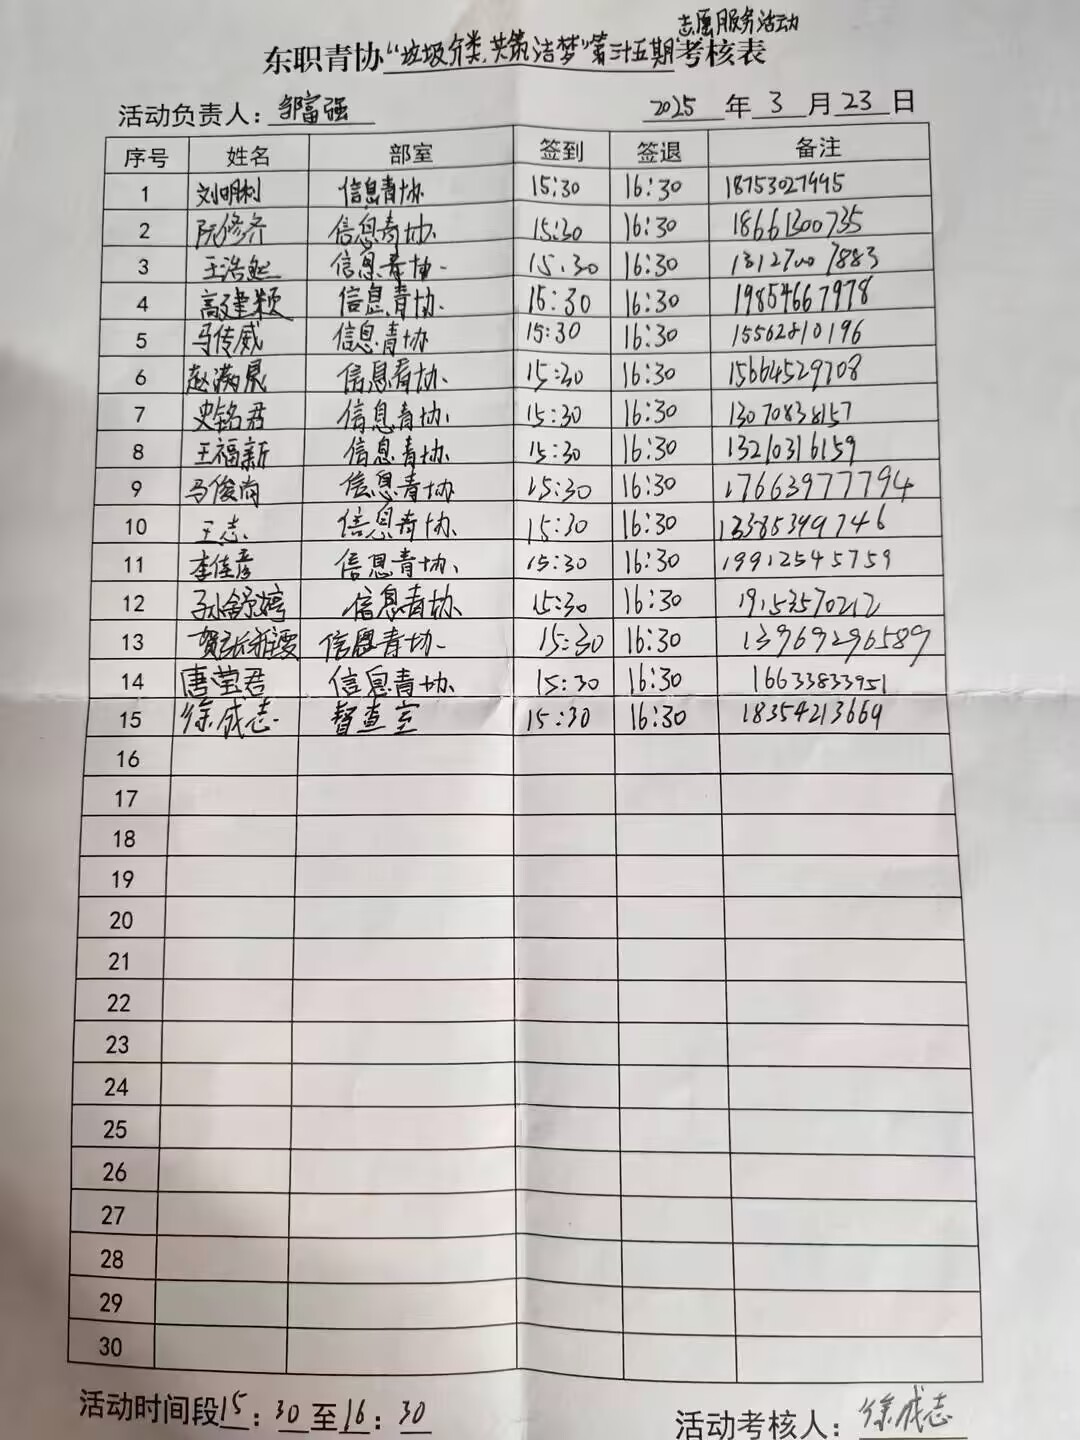 志愿服务活动
东职青协“垃圾分类,共筑洁梦”第三十五期考核表
活动负责人: 邹富强 2025 年 3 月 23 日
序号 姓名 部室 签到 签退 备注
1 刘明利 信息青协 15:30 16:30 18753027995
2 阮修齐 信息青协. 15:30 16:30 18661300735
3 王浩然 信息青协. 15:30 16:30 13127007883
4 高建颖 信息青协. 15:30 16:30 19854667978
5 马传威 信息青协 15:30 16:30 15562810196
6 赵满晨 信息青协. 15:30 16:30 15664529708
7 史铭君 信息青协. 15:30 16:30 13070838157
8 王福新 信息青协. 15:30 16:30 13210316159
9 马俊尚 信息青协 15:30 16:30 17663977794
10 王志. 信息青协. 15:30 16:30 13385399746
11 李佳彦 信息青协. 15:30 16:30 19912545759
12 孙舒婷 信息青协. 15:30 16:30 19153570212
13 信息青协. 15:30 16:30 13969296589
14 唐莹君 信息青协. 15:30 16:30 16633833951
15 徐成志. 督查室 15:30 16:30 18354213669
16
17
18
19
20
21
22
23
24
25
26
27
28
29
30
活动时间段 15:30 至 16:30 活动考核人: 徐成志